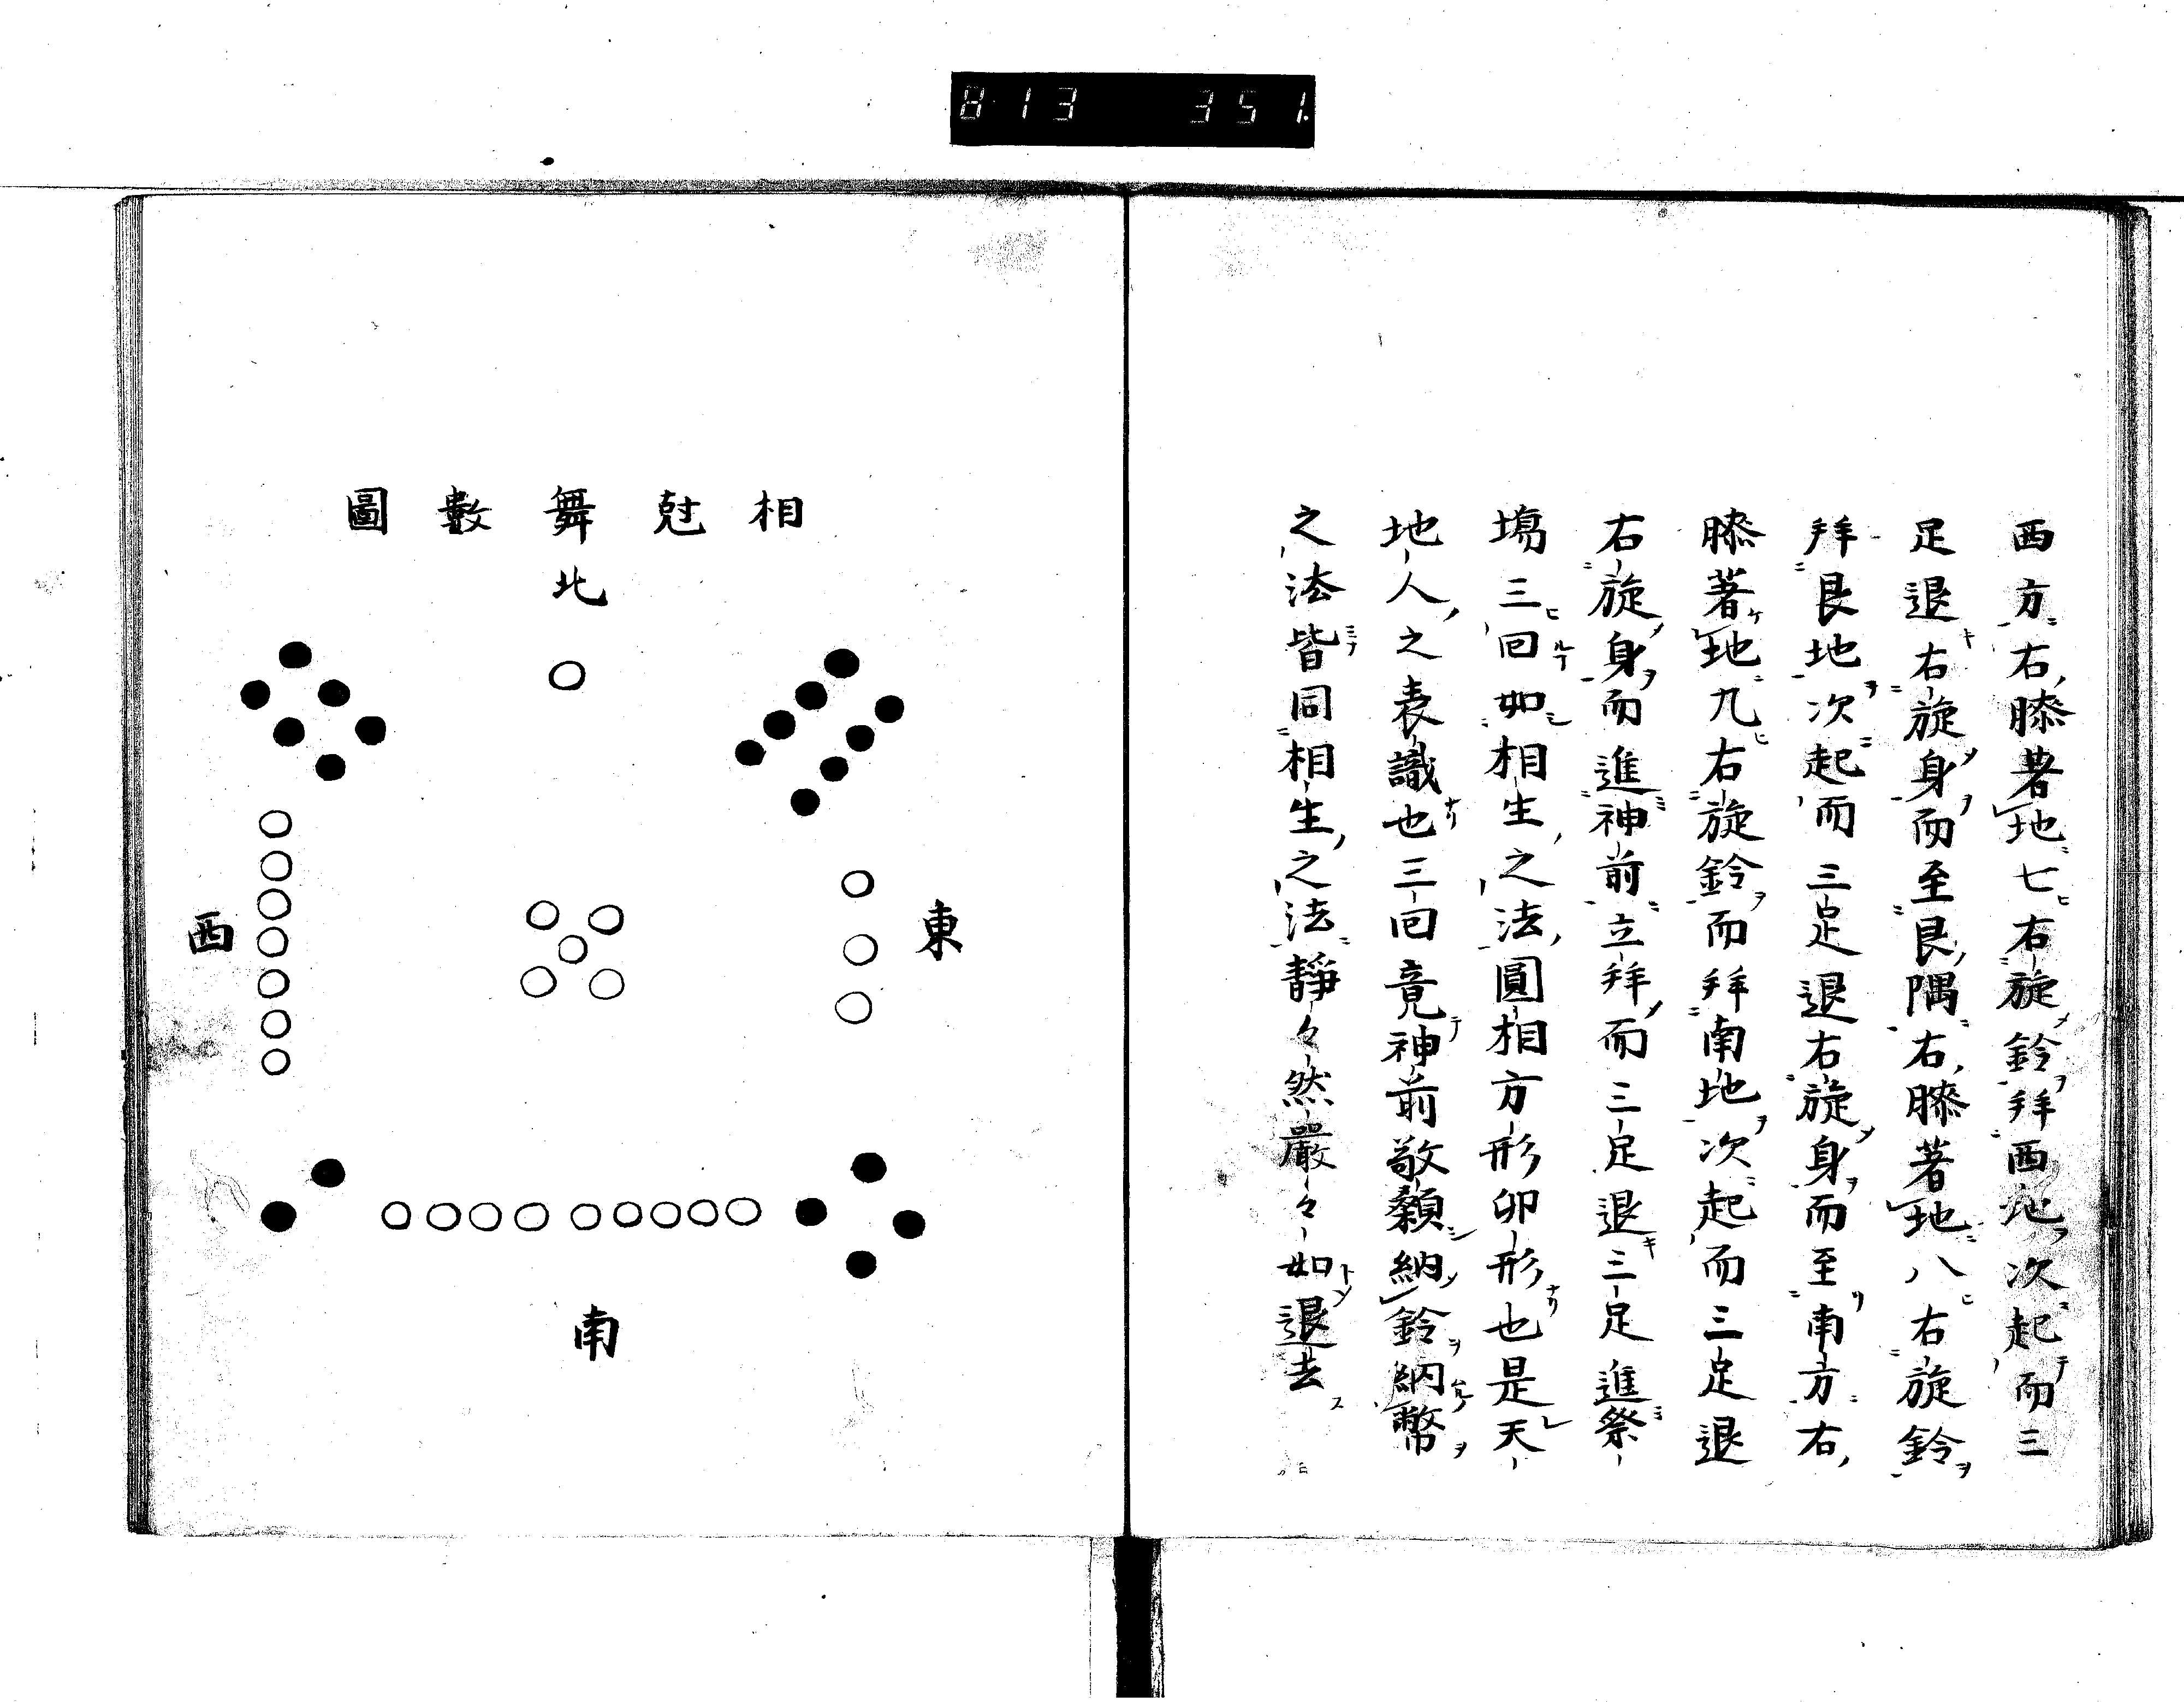 813 351.
西方右膝著地七右旋鈴拜西地次起而三
足退右旋身而至艮隅右膝著地八右旋鈴
拜艮地次起而三足退右旋身而至南方右
膝著地九右旋鈴而拜南地次起而三足退
右旋身而進神前立拜而三足退三足進祭
場三回如相生之法圓相方形卯形也是天
地人之表識也三回竟神前敬顙納鈴納幣
之法皆同相生之法靜々然嚴々如退去
相尅舞數圖
北
東
西
南